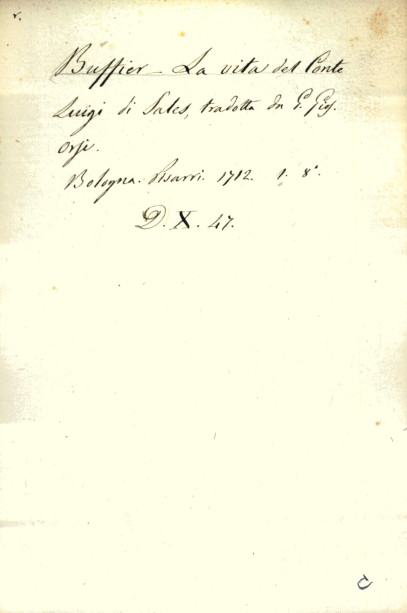 r.
Buffier - La vita del Conte
Luigi di Sales, tradotta da G. Gios.
Orsi.
Bologna. Pisarri. 1712. 1. 8°.
D. X. 47.
C